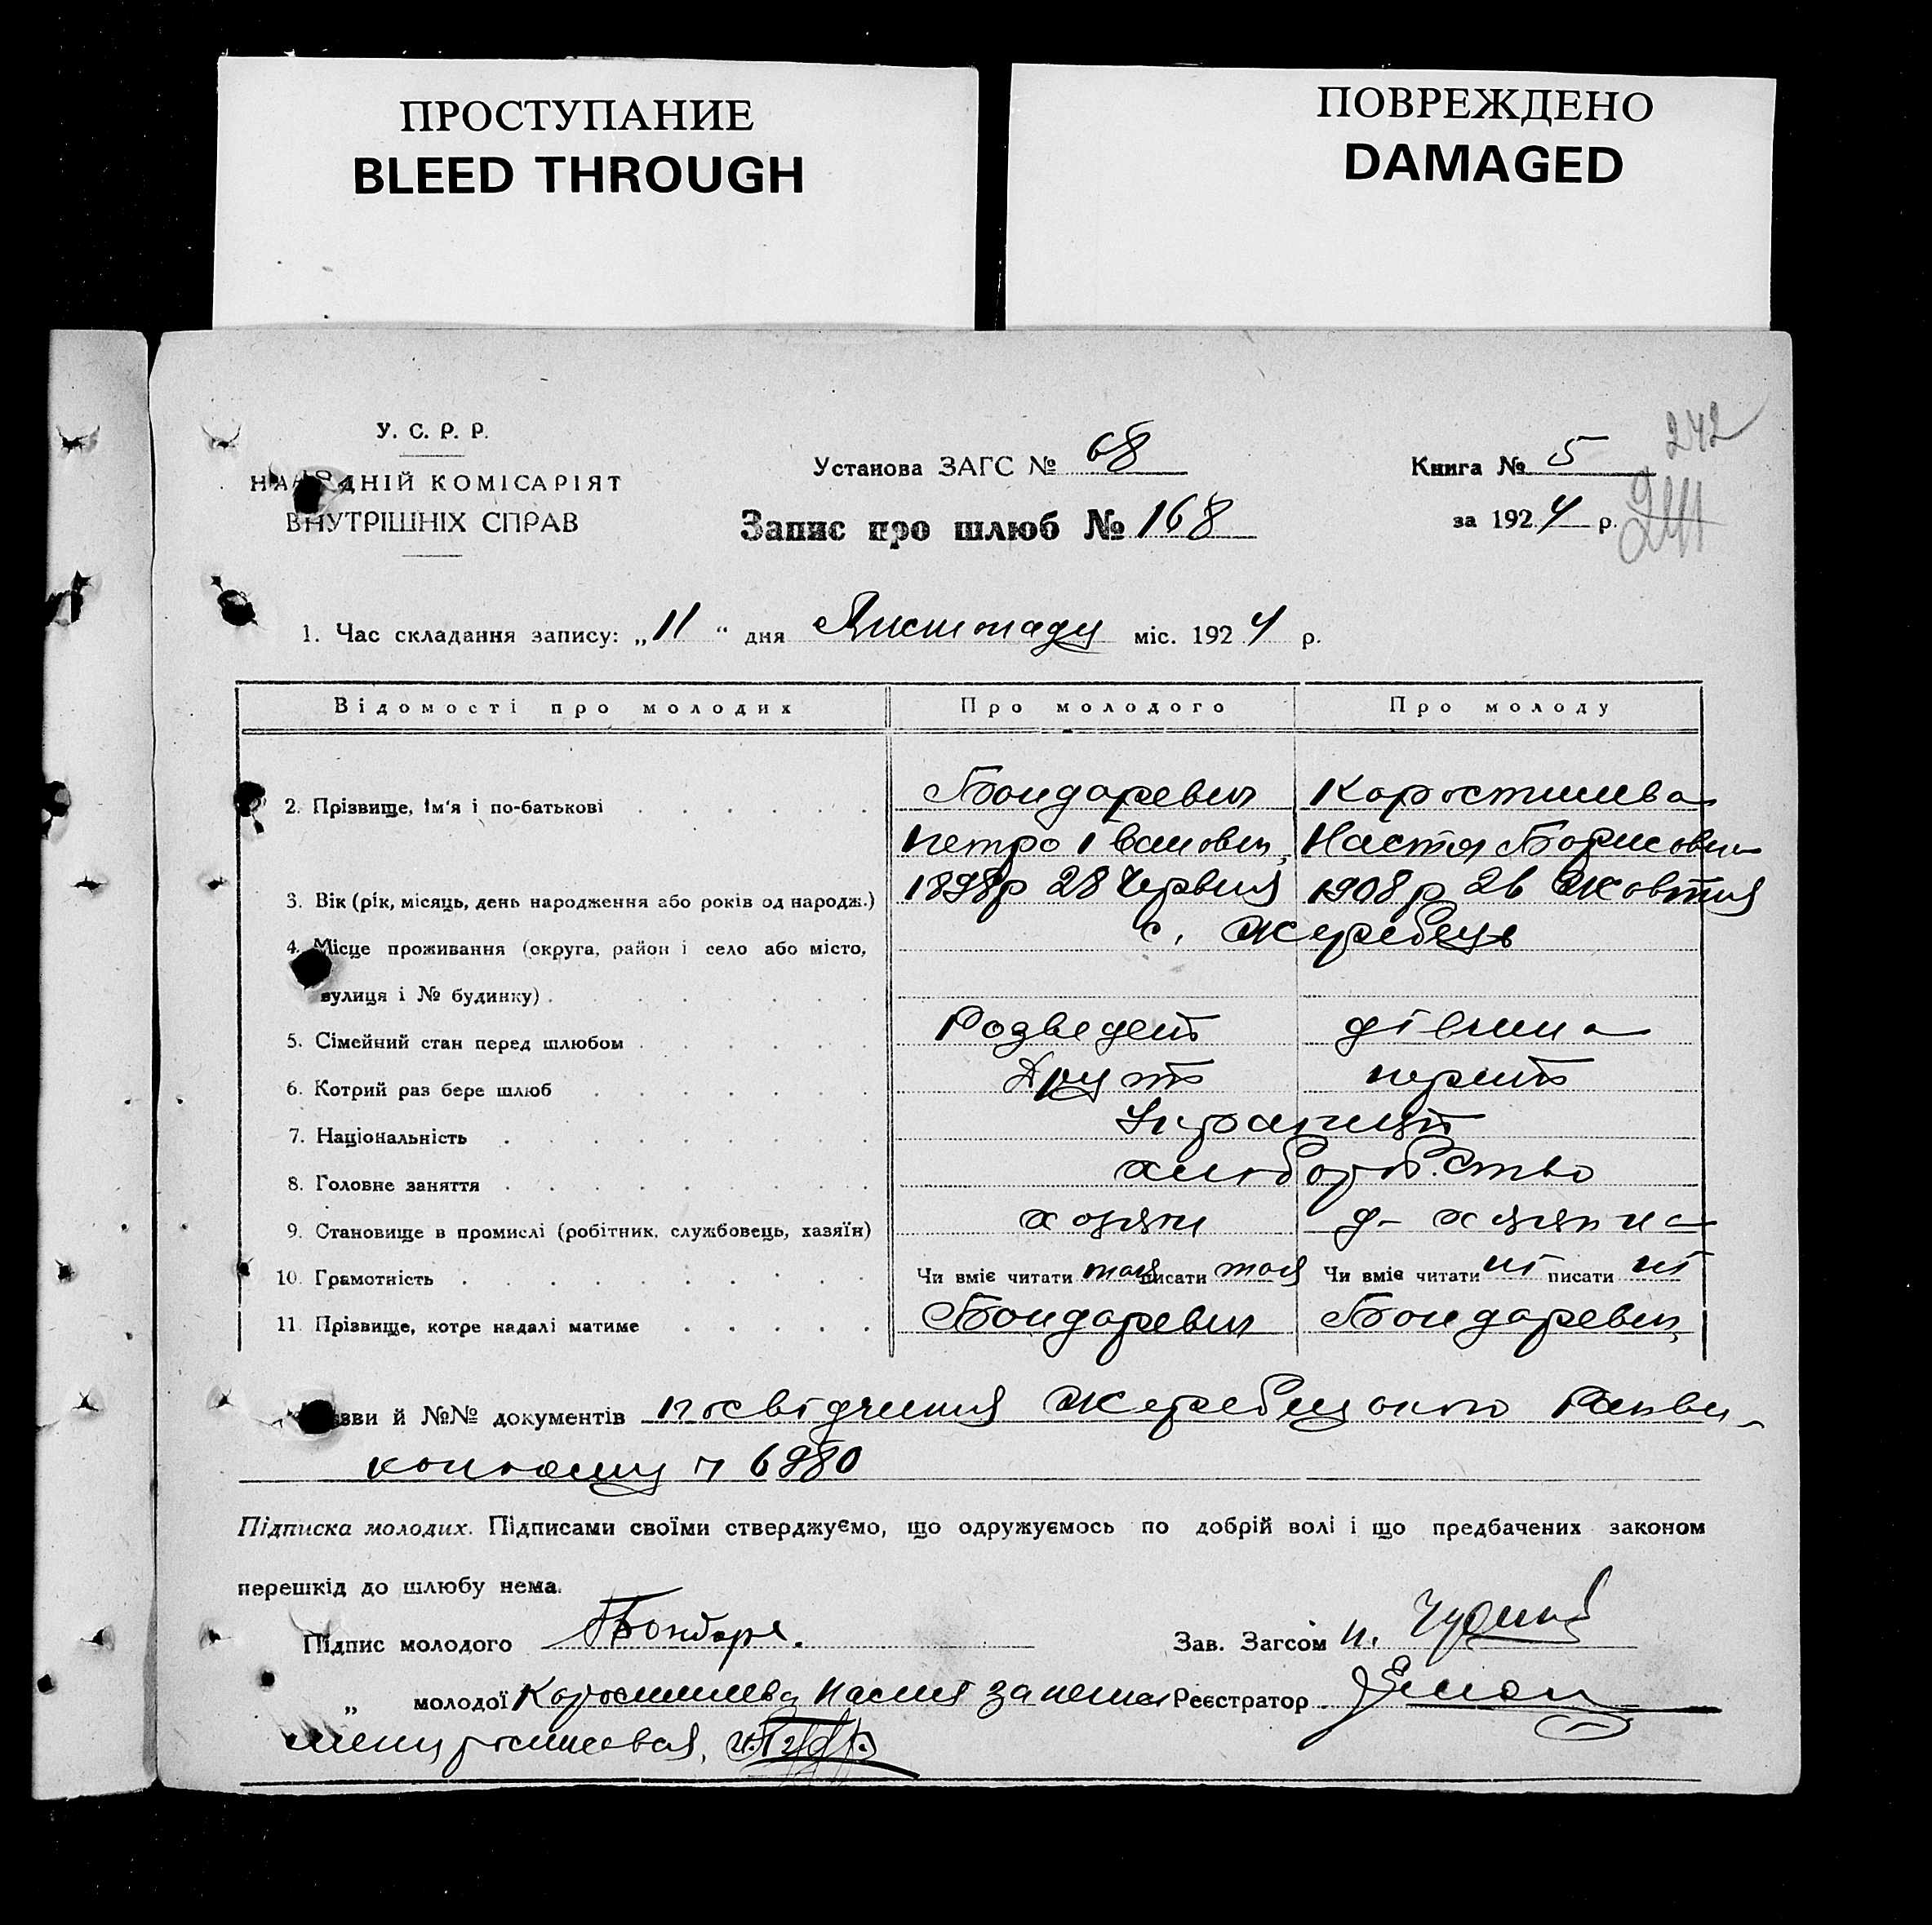 ПРОСТУПАНИЕ
BLEED THROUGH
ПОВРЕЖДЕНО
DAMAGED
У. С. Р. Р.
НА РДНІЙ КОМІСАРІЯТ
ВНУТРІШНІХ СПРАВ
Установа ЗАГС № 68
Запис про шлюб № 168
Книга № 5
242
за 1924 р.
241
1. Час складання запису: „11“ дня Листопаду міс. 1924 р.
Відомості про молодих Про молодого Про молоду
Бондаревич Коростишева
2. Прізвище, Ім'я і по-батькові
Петро Іванович Настя Борисовна
3. Вік (рік, місяць, день народження або років од народж.) 1898р 28 Червня 1908 р 26 Жовтня
4. Місце проживання (округа, район і село або місто, с. Жеребець
вулиця і № будинку)
5. Сімейний стан перед шлюбом Розведений дівчина
6. Котрий раз бере шлюб
7. Національність
8. Головне заняття
9. Становище в промислі (робітник, службовець, хазяїн)
10. Грамотність Чи вміє читати писати Чи вміє читати ні писати ні
11. Прізвище, котре надалі матиме Бондаревич Бондаревич
зви й №№ документів посвідчення Жеребецького Райви-
конкому 6980
Підписка молодих. Підписами своїми стверджуємо, що одружуємось по добрій волі і що предбачених законом
перешкід до шлюбу нема.
Підпис молодого Бондаре. Зав. Загсом
„ молодої Коростишева Настя Реєстратор